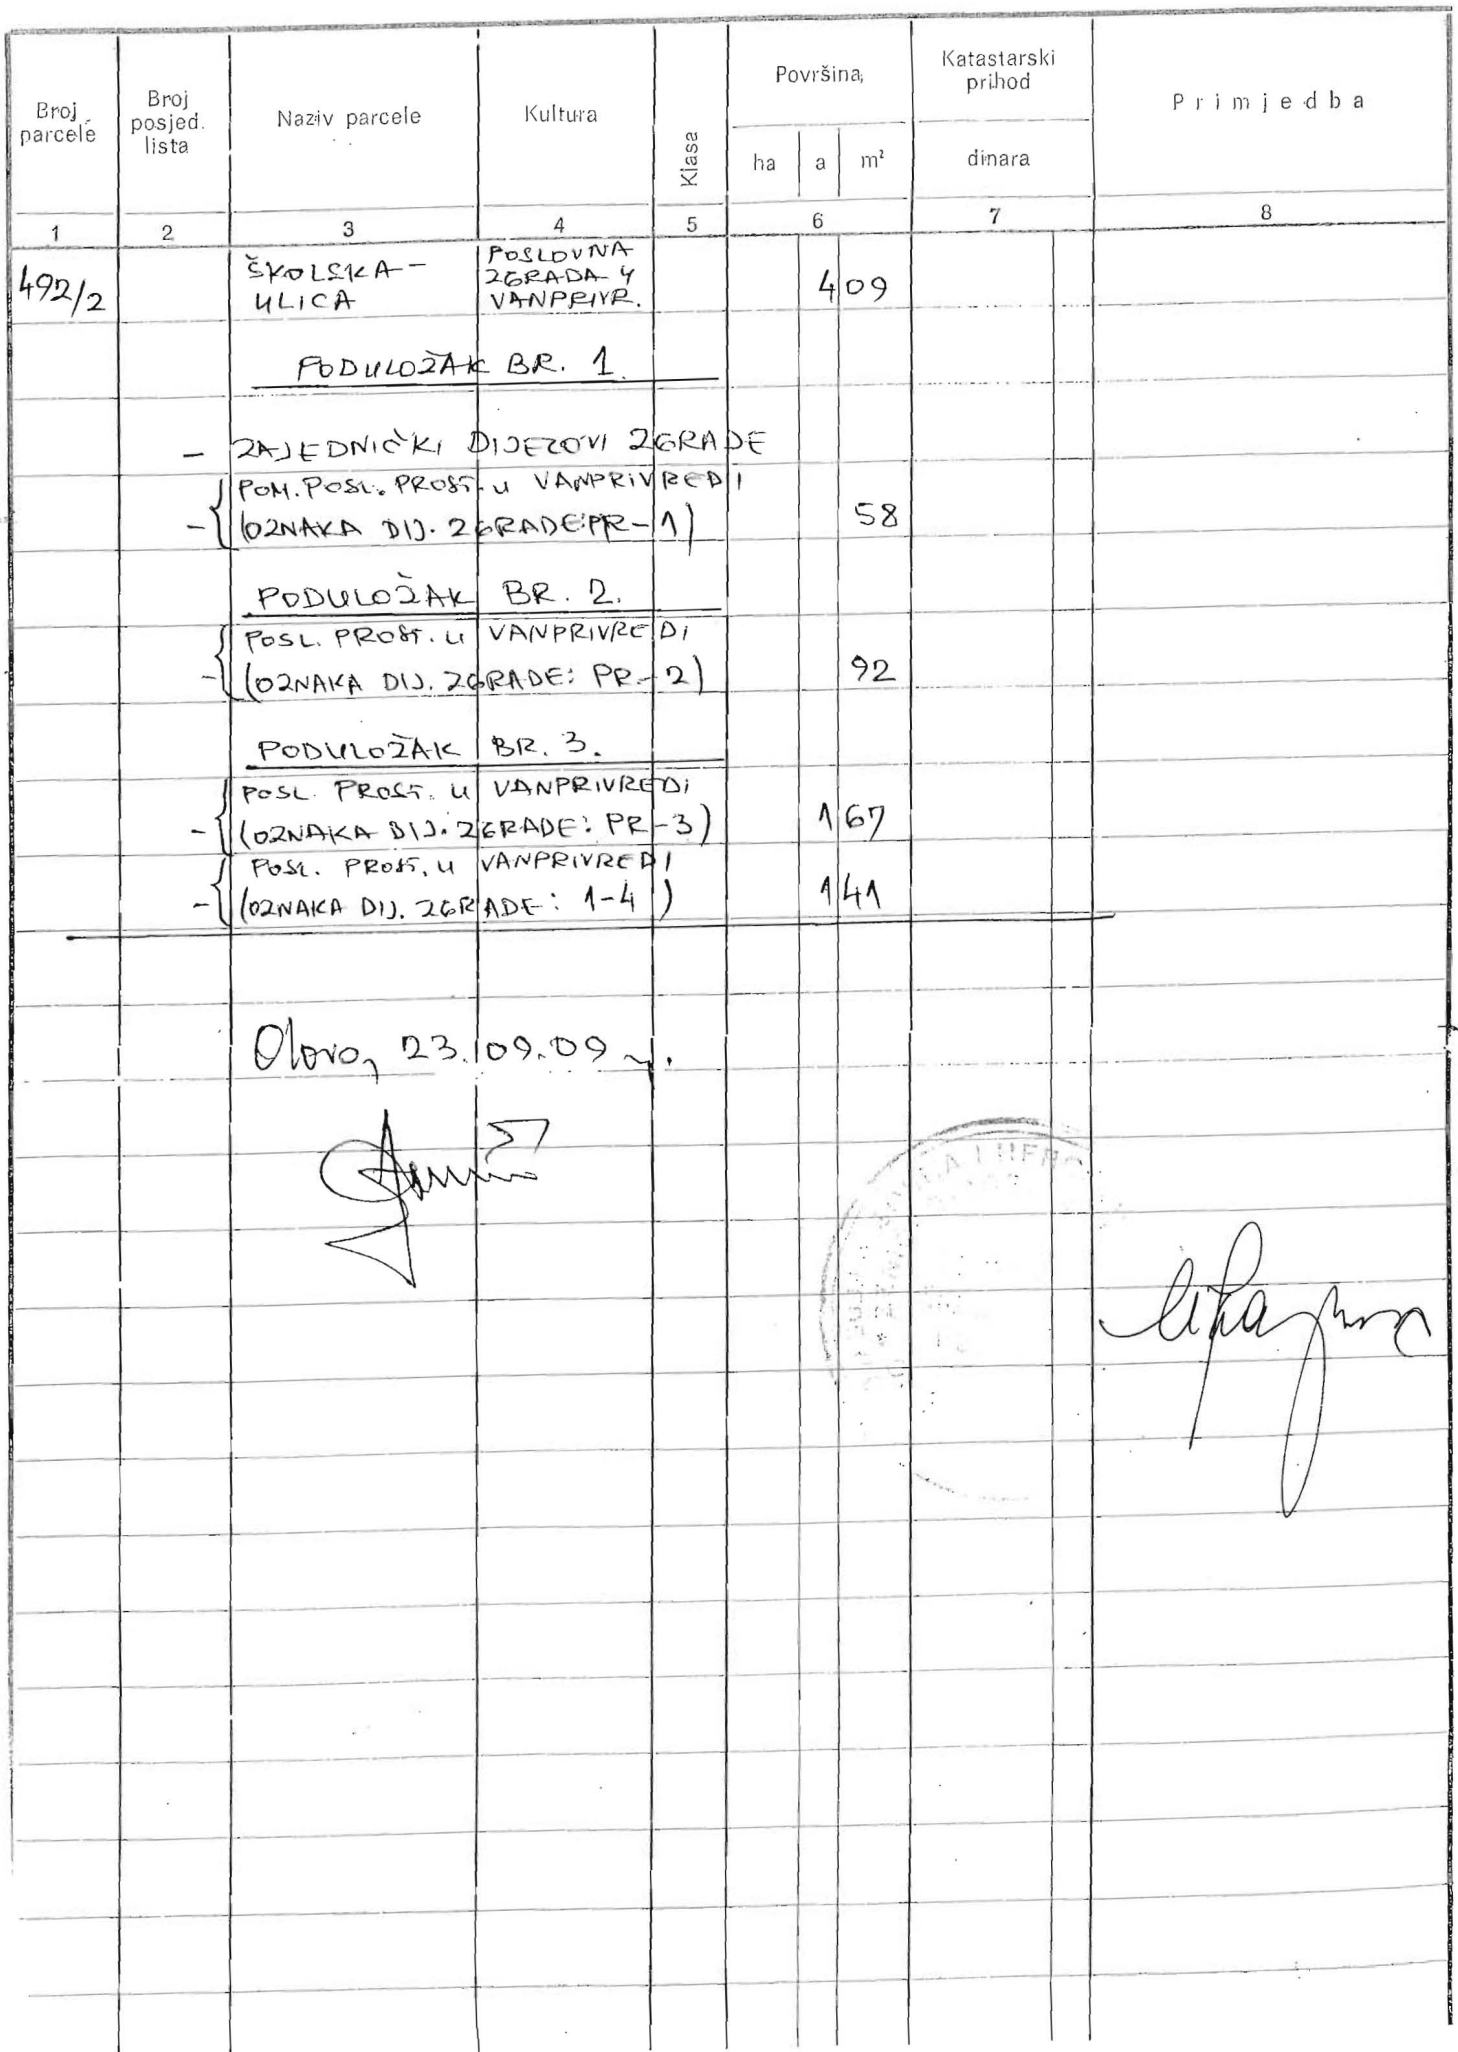 Broj parcele
Broj posjed. lista
Naziv parcele
Kultura
Klasa
Površina
Katastarski prihod
Primjedba
ha a m²
dinara
1 2 3 4 5 6 7 8
492/2 ŠKOLSKA- ULICA POSLOVNA ZGRADA U VANPRIVR. 4 09
PODULOŽAK BR. 1.
- ZAJEDNIČKI DIJELOVI ZGRADE
POM. POSL. PROST. U VANPRIVREDI
- (OZNAKA DIJ. ZGRADE: PR-1) 58
PODULOŽAK BR. 2.
POSL. PROST. U VANPRIVREDI
- (OZNAKA DIJ. ZGRADE: PR-2) 92
PODULOŽAK BR. 3.
POSL. PROST. U VANPRIVREDI
- (OZNAKA DIJ. ZGRADE: PR-3) 1 67
POSL. PROST. U VANPRIVREDI
- (OZNAKA DIJ. ZGRADE: 1-4) 1 41
Olovo, 23.09.09